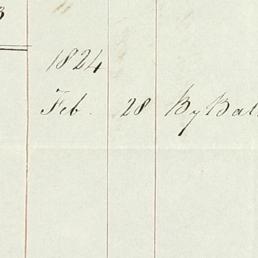 3
1824
Feb. 28 By Bal